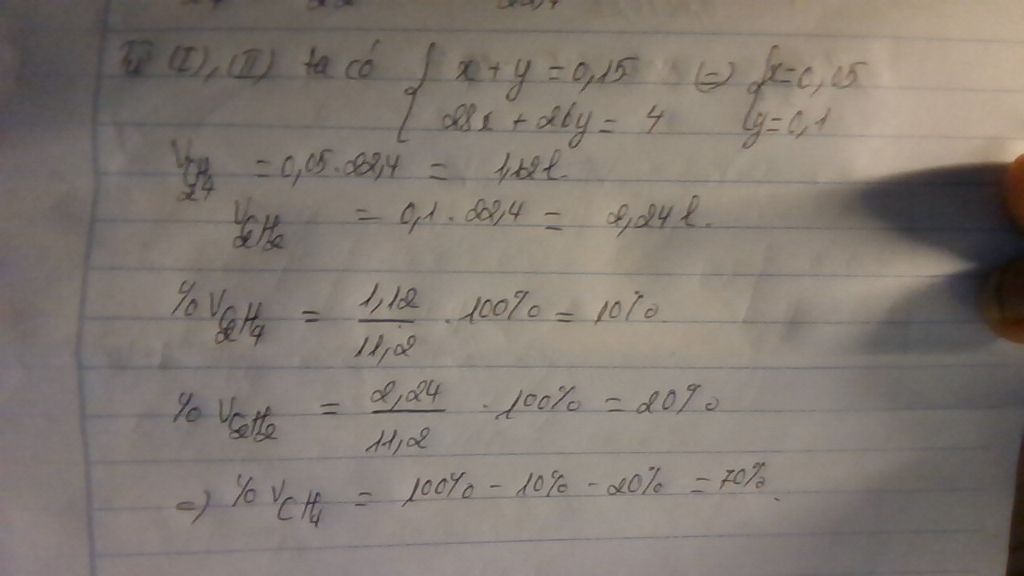 Từ (I), (II) ta có { x + y = 0,15 (=) { x = 0,05
28x + 26y = 4 y = 0,1
V C2H4 = 0,05 . 22,4 = 1,12 l.
V C2H2 = 0,1 . 22,4 = 2,24 l.
% V C2H4 = 1,12 / 11,2 . 100% = 10%
% V C2H2 = 2,24 / 11,2 . 100% = 20%
=) % V CH4 = 100% - 10% - 20% = 70%.